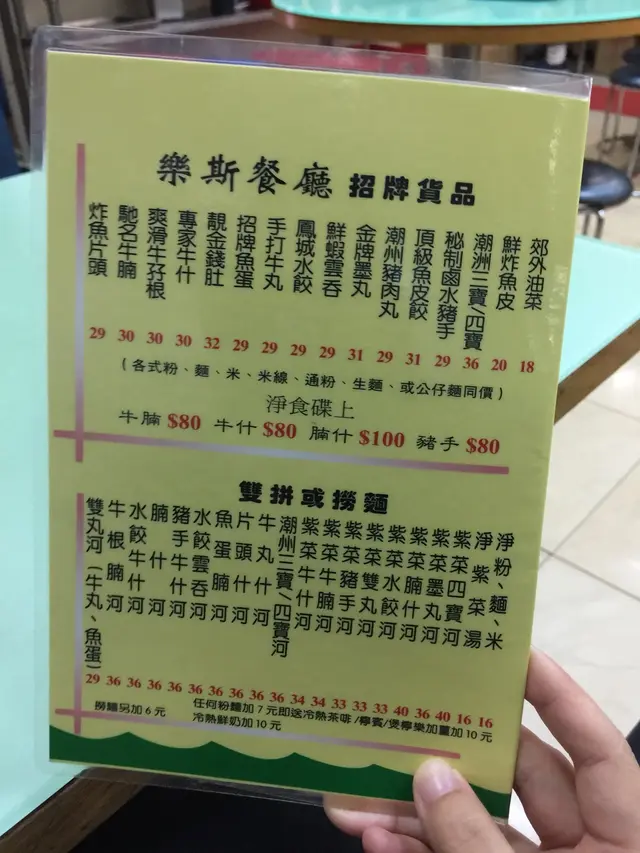 樂斯餐廳 招牌貨品
郊外油菜
鮮炸魚皮
潮洲三寶/四寶
秘制鹵水豬手
頂級魚皮餃
潮州豬肉丸
金牌墨丸
鮮蝦雲吞
鳳城水餃
手打牛丸
招牌魚蛋
靚金錢肚
專家牛什
爽滑牛孖根
馳名牛腩
炸魚片頭
29 30 30 30 32 29 29 29 29 31 29 31 29 36 20 18
(各式粉、麵、米、米線、通粉、生麵、或公仔麵同價)
淨食碟上
牛腩 $80 牛什 $80 腩什 $100 豬手 $80
雙拼或撈麵
淨粉、麵、米
淨紫菜湯
紫菜四寶河
紫菜墨丸河
紫菜腩什河
紫菜水餃河
紫菜雙丸河
紫菜豬手河
紫菜牛腩河
潮州三寶/四寶河
牛丸什河
片頭什河
魚蛋腩河
水餃雲吞河
豬手牛什河
腩什河
水餃牛什河
牛根腩河
雙丸河(牛丸、魚蛋)
29 36 36 36 36 36 36 36 36 36 34 34 33 33 33 40 36 40 16 16
撈麵另加 6 元
任何粉麵加 7 元即送冷熱茶啡/檸賓/煲檸樂加量加 10 元
冷熱鮮奶加 10 元